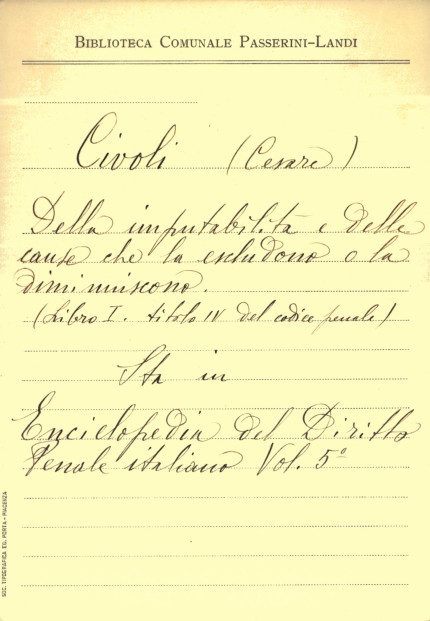 BIBLIOTECA COMUNALE PASSERINI-LANDI
Civoli (Cesare)
Della imputabilità e delle
cause che la escludono o la
diminuiscono.
(Libro I. titolo IV del codice penale)
Sta in
Enciclopedia del Diritto
Penale italiano Vol. 5°
SOC. TIPOGRAFICA ED. PORTA - PIACENZA